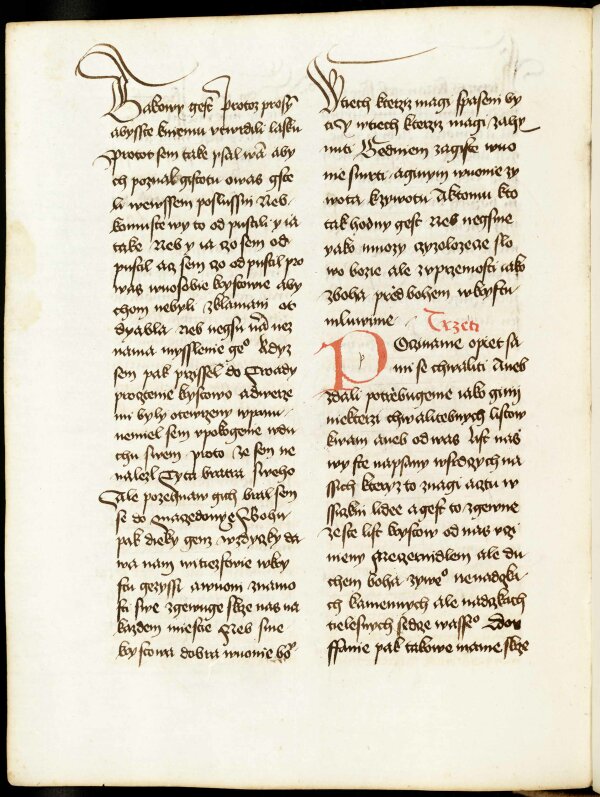 Takowy gest Protoz prosy
abysste knemu vtwrdali lasku
Protot sem take psal wā aby
ch poznal gistotu owas gste
li wewssem poslussni Neb
komuste wy to od pustili y ia
take Neb y ia czo sem od
pustil acz sem czo od pustil pro
was wuosobie krystowie aby
chom nebyli zklamani ot
dyabla neb negsu nā nez
nama myssleme geº kdyz
sem pak przyssel do Troady
proczteme krystowo a dwerze
mi byly otewrzeny wpanu
nemiel sem vpokogeme wdu
chu swem proto ze sem ne
nalezl Tyta bratra sweho
Ale pozehnaw gich bral sem
se do Maczedonye Bohu
pak dieky genz wzdyczky da
wa nam witiezstwie wkry
stu gezyssi awuoni znamo
sti swe zgewuge skrze nas na
kazdem miestie Neb sme
krystowa dobra wuonie boº
Wtiech kterziz magi spaseni by
ti y wtiech kterziz magi zahy
nuti Gedniem zagiste wuo
nie smrti aginym wuonie zy
wota kzywotu Aktomu kto
tak hodny gest Neb negsme
yako mnozy czyzolozecze slo
wo bozie ale zvprzemosti iako
zboha przed bohem wkrystu
mluwime Trzeti
POczname opiet sa
mi se chwaliti Aneb
zdali potrzebugeme iako gini
niekterzi chwalitebnych listow
kwam aneb od was List nas
wy ste napsany wsrdczych na
ssich kteryz to znagi acztu w
ssiczkni lidee a gest to zgewne
ze ste list krystow od nas vczi
nieny Ne czernidlem ale du
chem boha zyweº ne nadczka
ch kamennych ale nadczkach
tielesnych srdcze wasseº Dou
ffanie pak takowe mame skrze